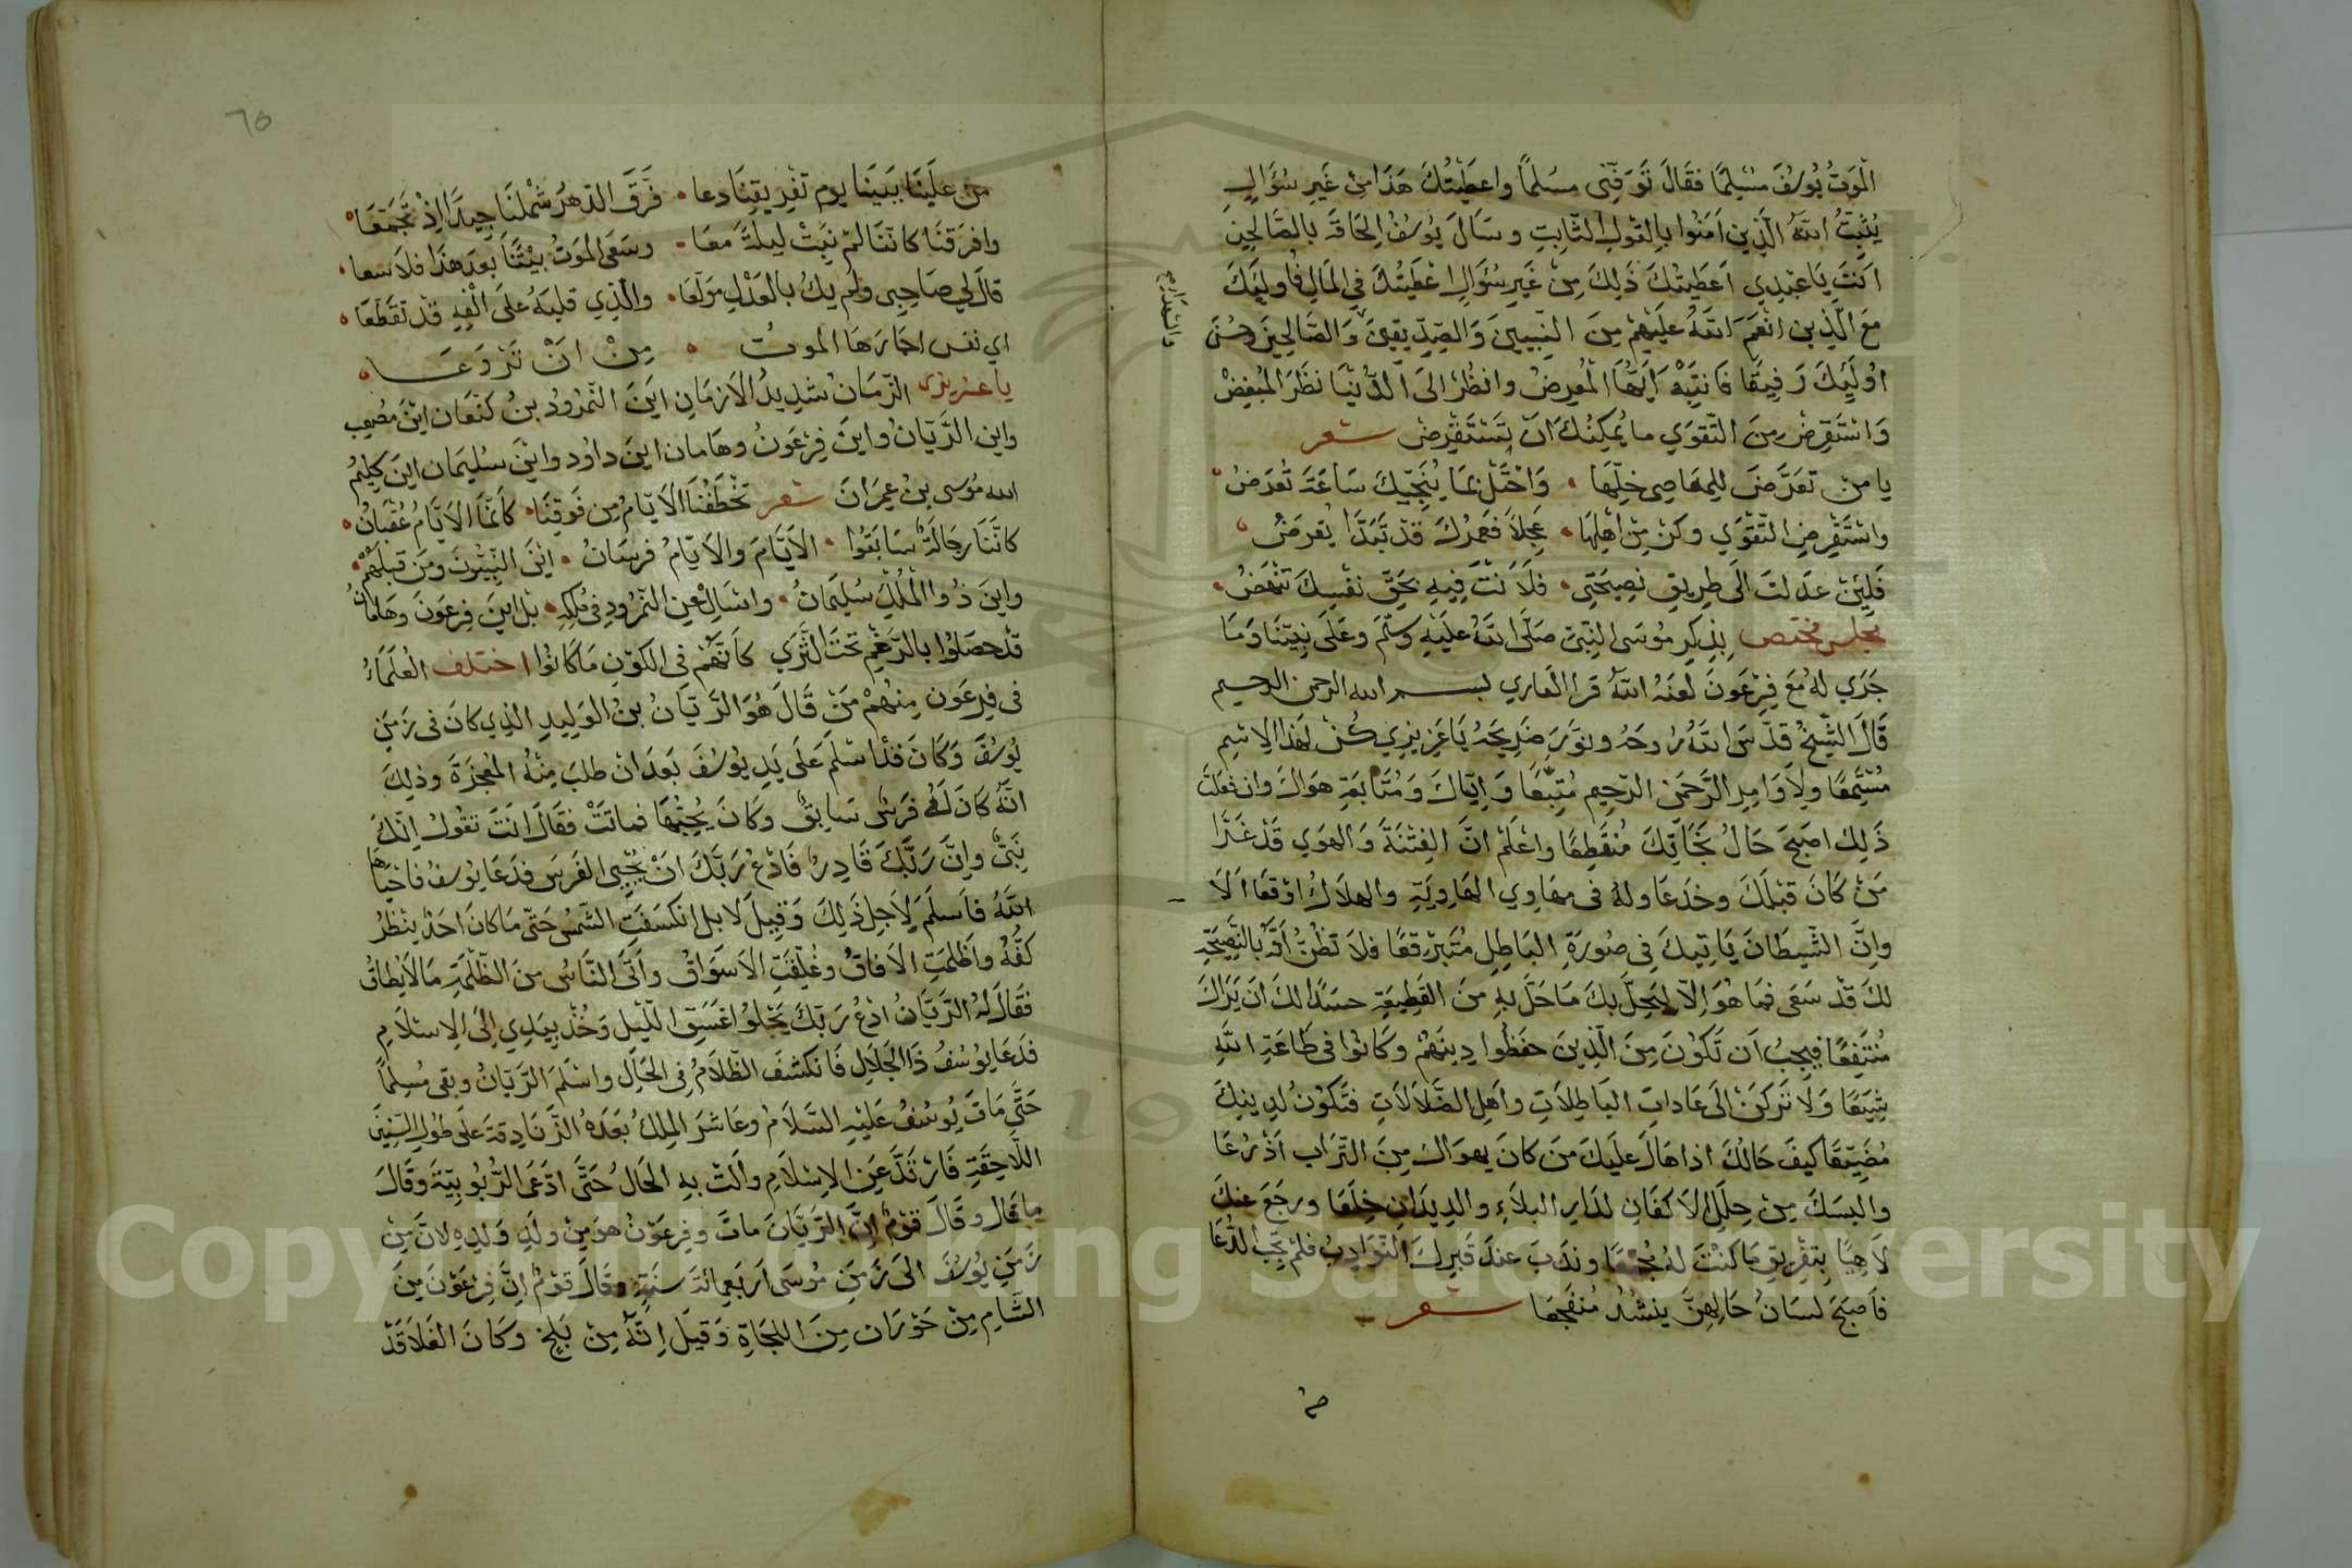 الْمَوْتَ يُوسُفُ مُسْلِمًا فقَالَ تَوَفَّنِى مسُلمًا واعطَيْتُكَ هَذَا مِنْ غَيرِ سُؤَالٍ
يُثبِّتُ اللهُ الَّذِينَ آمَنُوا بالِقَولِ الثَّابِتِ وسَالَ يُوسُفُ الِحَاقَهُ بالصَّالِحِينَ
اَنتَ يَاعَبْدِي اَعطَيتُكَ ذَلِكَ مِنْ غَيرِ سُؤَالٍ اعْطَيْتُكَ فِي المَالِ فَاوليِكَ
مَعَ الَّذِين انْعَمَ اللَّهُ عَلَيْهِمْ مِنَ النَّبِيينَ وَالصِدِّيقِينَ وَالصَّالِحِينَ وحُسُنَ
والشهداء صح
اوُلَيِكَ رَفِيقًا فَانتَبِهْ اَيُّهَا المُعرِضُ وانظُر الىَ الدُّنْيَا نظَرَ المُبْغِضْ
وَاسْتَقرِضْ مِنَ التَّقوَي ما يُمكِنُكَ انَ تَسْتَقْرِضْ شعر
يا مَنْ تَعَرَّضَ للِمعَاصِى خلِّهَا • وَاحْتَلْ بمَا يُنَجِّيكَ سَاعَةَ تُعْرَضُ
واسْتَقْرِضِ التَّقْوَي وكنْ مِنْ اهْلِهَا • عَجِلاً فعَمرُكَ قدْ تَبَدَّا يُقرَضُ
فَلِئَنْ عدَلتَ الَى طِرِيقِ نصِيحَتِى • فلَاَنتَ فِيهِ بحَقِّ نفسِكَ تنْهَضُ
مجلس مختص بذِكرِ مُوسَى النِبّىِ صَلَّى اللهُ عليَهِ وسَلَّمَ وعَلىَ نبِيّنَا وَمَا
جَرَي لَهُ مَعَ فِرْعَونَ لعَنَهُ اللهُ قرا القاري بسم الله الرحمن الرحيم
قَالَ الشَّيْخُ قدَّسَ اللهُ رُوحَهُ ونوَّرَ ضَرِيحَهُ يَا عَزِيزِي كُنْ لهَذَا الاِسْمِ
مُسْتَمِعًا ولِاَوَامِرِ الرَّحمَنِ الرّحِيمِ مُتَّبعًا وَاِيَّاكَ وَمُتَابَعَةِ هوَاكَ وان فعَلتَ
ذَلِكَ اصبَحَ حَالُ نجَاتِكَ مُنقَطِعًا واعْلَمْ انَّ الفِتْنَةَ وَالهوَي قدْ غَرَّا
مَنْ كَانَ قبْلَكَ وخدَعَا وله فى مهَاوِي الهَاوِيَةِ والهلاَكِ اوْقَعَا اَلاَ
وانَّ الشَّيطَانَ يَاتيِكَ فِى صوُرَةِ البَاطِلِ مُتَبَرْقِعًا فلاَ تَظُنَّ اَنَّه بالنَّصِيحَةِ
لكَ قدْ سَعَى فمَا هُوَ اِلَّا لِيَحِلَّ بكَ مَا حَلَّ بهِ مِنَ القَطِيعَةِ حسَدًا لكَ انَ يَرَاكَ
مُنتَفِعًا فيجِبُ اَن تَكُونَ مِنَ الّذِينَ حفَظُوا دِينَهُمْ وكَانُوا فى طَاعَةِ اللهِ
شِيَعًا وَلَا تَركَنْ الَى عَادَاتِ البَاطِلاَتِ واَهلِ الضَّلاَلاَتِ فتَكُونُ لِدِينِكَ
مُضَيِّعًا كيفَ حَالُكَ اذا هَالَ علَيكَ مَن كَانَ يهوَاكَ مِنَ التُّرَاب اَذْرُعَا
والبسَكَ مِنْ حِلَلِ الاَكفَانِ لدَارِ البلاَءِ والدِيدَانِ خِلَعَا ورجَعَ عنكَ
لاَهِيًا بِتفْرِيقِ مَا كنْتَ لهُ مُجْمِعًا وندَبَ عندَ قَبرِكَ النَّوَادِبُ فلمْ تجِبْ لدُعَا
فاَصبَحَ لسَانُ حَالِهِنَّ ينشُدُ مُتفَجِّعَا شعر
٦٥
من علَينَا ببَينَنا يوم تفْرِيقِنَا دعا • فرَّقَ الدّهرُ شَمْلنَا جِيدًا اِذْ تَجَمَّعَا
وافرَقنَا كانَّنَا لمْ نبَتْ ليلَةً معًا • وسَعَى المَوتُ بيْنَنَا بعَدَ هذَا فلاَ سعا
قالَ لِي صَاحِبِى ولمْ يكُ بالعَذْلِ مَولعَا • والَّذِي قلبَهُ علَى الْفِهِ قدْ تقَطَّعَا
اي نفس اجَارَهَا الموتُ • مِنْ انْ تَرَوَّعَا
يا عزيزى الزَّمَان شدِيدُ الاَزمَانِ ايَنَ النّمرُودُ بنُ كنْعَان اينَ مُصْعِب
واين الرَّيَّانُ واينَ فِرْعَونُ وهَامان اين داود وايْنَ سُليمَان اينَ كلِيمُ
الله مُوسى بنُ عِمرَانَ شعر تخْطَفُنَا الاَيّامُ مِن فَوقِنَا • كاَنمَّا الاَيَّامُ عُقبَانُ
كانَّنَا رجَالَةٌ سَابَقُوا • الاَيَّامَ والاَيّامُ فرسَانُ • ايْنَ النَّبِيُّونَ ومَنَ قبلَهُمْ
واينَ ذُوا المُلْكِ سُليَمانُ • واسَالِ عَنِ النّمرُودِ فىِ مُلكِهِ • بلْ ايَنَ فِرعَونَ وهَامَانُ
قدْ حصَلُوا بالرَّغْمِ تحتَ الثَّرَي كاَنّهُمْ فِى الكَوْنِ مَا كَانُوا اختلف العُلَمَاءُ
فى فِرعَون مِنهُمْ مَنْ قَالَ هُوَ الرَّيَّانُ بنُ الوَلِيدِ الذِي كانَ فى زمَنِ
يوُسُفَ وَكَانَ قدْ اسْلمَ عَلَى يَدِ يوُسُفَ بَعَدَ انْ طلبَ مِنْهُ المُعْجِزَةَ وذلِكَ
انَّهُ كَانَ لَهُ فرَسٌ سَابِقٌ وكَانَ يُحِبُّهَا فماتَتْ فقَالَ انَتَ تقوُلُ انّكَ
نَبِىٌّ وانَّ رَبَّكَ قَادِرٌ فَادْعُ رَبَّكَ انْ يُحْيِي الفَرسَ فدَعَا يوُسُفُ فَاحْيَاهَا
اللهُ فاَسلَمَ لِاَجلِ ذَلِكَ وَقِيلَ لا بل انكسَفَتِ الشَّمسُ حَتّى مَا كانَ احَدٌ ينْظُرُ
كَفَّهُ واَظْلمَتِ الاَفاقُ وغُلِقَتِ الاَسوَاقُ واَتَى النَّاسُ مِنَ الظّلْمَةِ مَا لَا يُطَاقُ
فقَالَ لهُ الرَّيَّانُ ادْعُ رَبّكَ يَجْلُو اغَسَقَ اللّيْلِ وَخُذْ بِيَدِي اِلَى الاِسْلاَمِ
فدَعَا يوُسُفُ ذَا الجَلاَلِ فَانكَشَفَ الظّلاَمُ فِى الحَالِ واسْلَمَ الرَّيّانُ وبقى مُسِلمًا
حَتَّى مَاتَ يُوسُفُ عَلَيْهِ السَّلَامُ وعَاشَرَ المِلكُ بعَدَهُ الزَّنَادِقةَ علَى طوُلِ السِّنِينَ
اللَّاحِقَةِ فَارْتَدَّ عَنِ الاِسْلَامِ واَلَتْ بهِ الحَالُ حَتَّى ادّعَى الرُّبُوبِيّةَ وقَالَ
ما قَالَ وقَالَ قوْمٌ اِنَّ الرَّيَّانَ ماتَ وفِرعَوْنُ هوَ مِنْ ولَدِ وَلدِهِ لانَّ مِنْ
زَمَنِ يوُسُفَ الى زَمَنِ مُوسَى اَربَعِمائَةِ سنَةٍ وقَالَ قوْمٌ اِنَّ فِرْعَوْنَ مِنَ
الشَّامِ مِنْ حَوْرَان مِنَ اللجَاةِ وَقِيلَ اِنّهُ مِنْ بَلخٍ وكَانَ الغَلاَ قدْ
Copyright © King Saud University